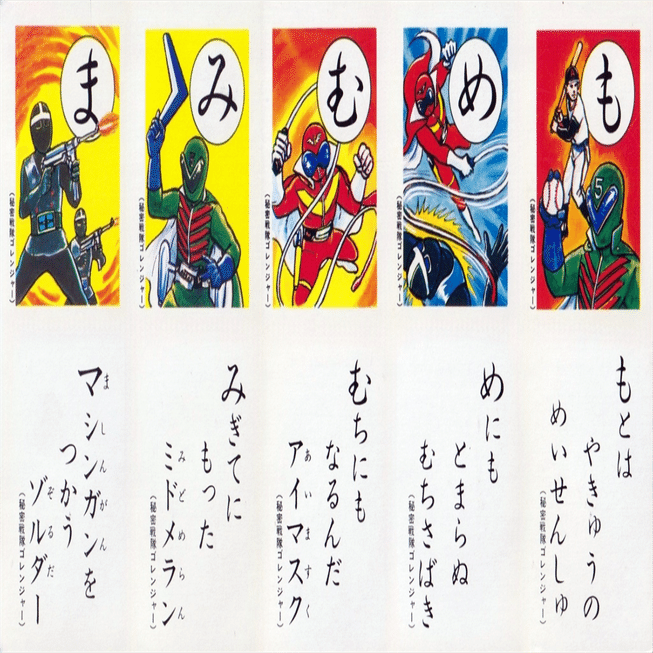 ま
(秘密戦隊ゴレンジャー)
み
(秘密戦隊ゴレンジャー)
む
(秘密戦隊ゴレンジャー)
め
(秘密戦隊ゴレンジャー)
も
5
(秘密戦隊ゴレンジャー)
マシンガンを
ましんがん
つかう
ゾルダー
ぞるだ
(秘密戦隊ゴレンジャー)
みぎてに
もった
ミドメラン
みどめらん
(秘密戦隊ゴレンジャー)
むちにも
なるんだ
アイマスク
あいますく
(秘密戦隊ゴレンジャー)
めにも
とまらぬ
むちさばき
(秘密戦隊ゴレンジャー)
もとは
やきゅうの
めいせんしゅ
(秘密戦隊ゴレンジャー)